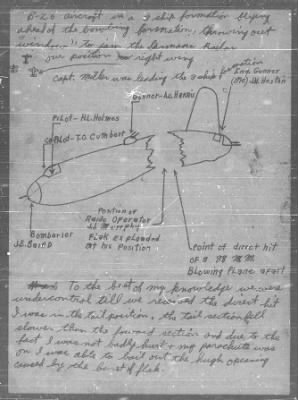 B-26 aircraft in a 3 ship formation flying
ahead of the bombing formation, throwing out
"window" to jam the Germans Radar
our position right wing
Capt. Miller was leading the 3 ship formation
Eng. Gunner
Gunner-
Pilot-H.L. Holmes
CoPilot-T.C. Cumbert
Position of
Radio Operator
J.J. Murphy
Flak Exploded
At his Position
Bombardier
Point of direct hit
of a 88 MM
Blowing Plane apart
To the best of my knowledge we were
undercontrol till we received the direct hit
I was in the tail position, the tail section fell
slower than the foward section and due to the
fact I was not badly hurt & my parachute was
on I was able to bail out the hugh opening
caused by the burst of flak.